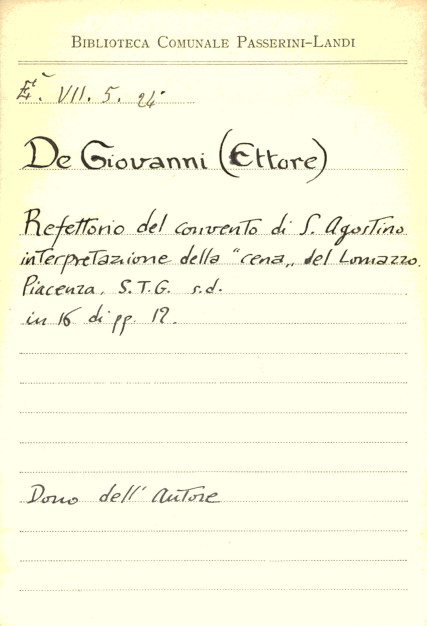 BIBLIOTECA COMUNALE PASSERINI-LANDI
VII. 5. 24
De Giovanni (Ettore)
Refettorio del convento di S. Agostino
interpretazione della "cena„ del Lomazzo.
Piacenza. S.T.G. s.d.
in 16 di pp. 12.
Dono dell' autore